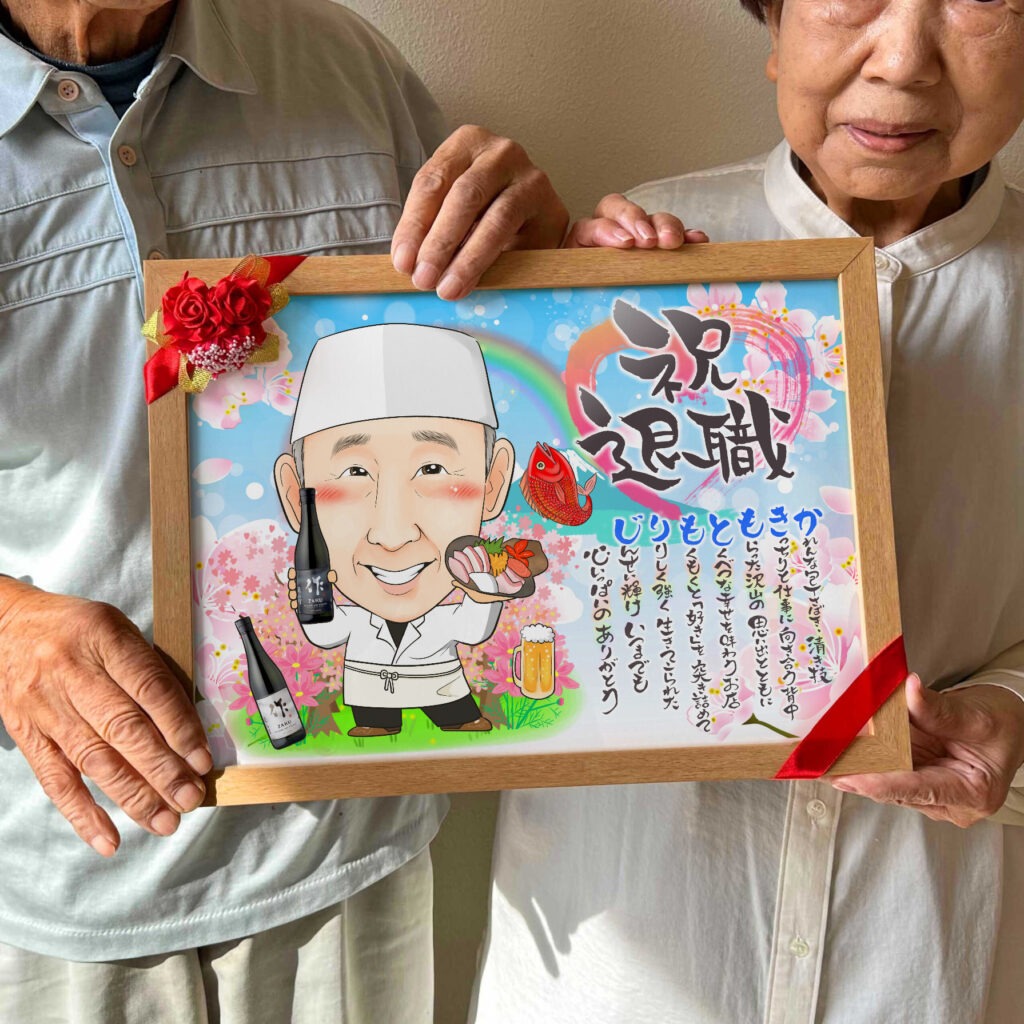 祝
退職
かれんな包丁さばき、清き技
きっちりと仕事に向き合う背中
もらった沢山の思い出とともに
とくべつな幸せを味わうお店
もくもくと「好き」を突き詰めて
りりしく強く生きてこられた
じんせい輝け いつまでも
心いっぱいのありがとう
作
ZAKU
作
ZAKU